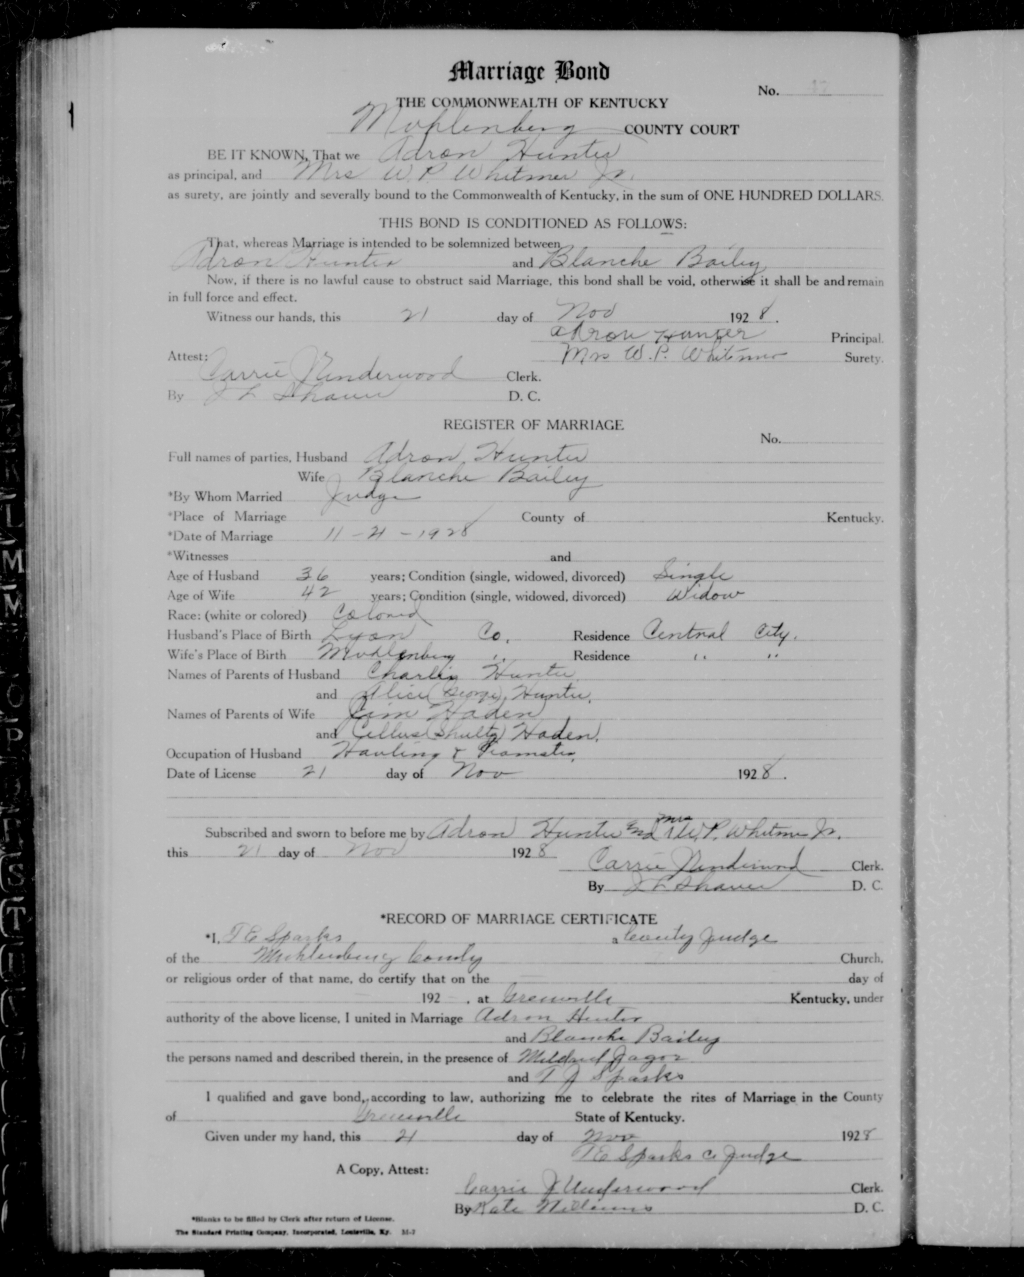 Marriage Bond
No.
THE COMMONWEALTH OF KENTUCKY
Muhlenberg COUNTY COURT
BE IT KNOWN, That we Adron Hunter
as principal, and Mrs W. P. Whitmer Jr.
as surety, are jointly and severally bound to the Commonwealth of Kentucky, in the sum of ONE HUNDRED DOLLARS.
THIS BOND IS CONDITIONED AS FOLLOWS:
That, whereas Marriage is intended to be solemnized between
Adron Hunter and Blanche Bailey
Now, if there is no lawful cause to obstruct said Marriage, this bond shall be void, otherwise it shall be and remain
in full force and effect.
Witness our hands, this 21 day of Nov 1928.
Adron Hunter Principal.
Attest: Mrs W. P. Whitmer Surety.
Carrie J Underwood Clerk.
By J L Shaver D. C.
REGISTER OF MARRIAGE
No.
Full names of parties, Husband Adron Hunter
Wife Blanche Bailey
*By Whom Married Judge
*Place of Marriage County of Kentucky.
*Date of Marriage 11-21-1928
*Witnesses and
Age of Husband 36 years; Condition (single, widowed, divorced) Single
Age of Wife 42 years; Condition (single, widowed, divorced) Widow
Race: (white or colored) Colored
Husband's Place of Birth Lyon Co. Residence Central City.
Wife's Place of Birth Muhlenberg " Residence " "
Names of Parents of Husband Charlie Hunter
and Alice (George) Hunter.
Names of Parents of Wife Jim Haden
and (Shultz) Haden.
Occupation of Husband Hauling & Teamster.
Date of License 21 day of Nov 1928.
Subscribed and sworn to before me by Adron Hunter and Mrs W. P. Whitmer Jr.
this 21 day of Nov 1928
Carrie J Underwood Clerk.
By J L Shaver D. C.
*RECORD OF MARRIAGE CERTIFICATE
*I, T E Sparks a County Judge
of the Muhlenberg County Church,
or religious order of that name, do certify that on the — day of
192 — , at Greenville Kentucky, under
authority of the above license, I united in Marriage Adron Hunter
and Blanche Bailey
the persons named and described therein, in the presence of Mildred Jagoe
and T J Sparks
I qualified and gave bond, according to law, authorizing me to celebrate the rites of Marriage in the County
of Greenville State of Kentucky.
Given under my hand, this 21 day of Nov 1928
T E Sparks C Judge
A Copy, Attest:
Carrie J Underwood Clerk.
By Kate Williams D. C.
*Blanks to be filled by Clerk after return of License.
The Standard Printing Company, Incorporated, Louisville, Ky.